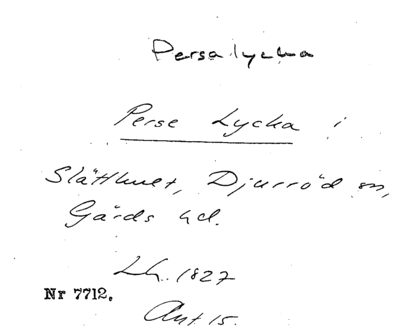 Persalycka
Perse Lycka i
Slätthult, Djurröd sn,
Gärds hd.
Lh. 1827
Nr 7712.
Ant. 15.